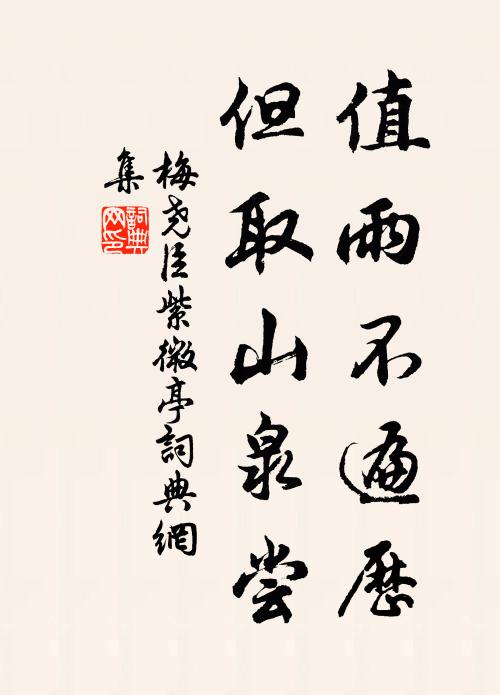 值雨不遍歷
但取山泉尝
梅尧臣紫微亭詞典網
集
詞典
网印